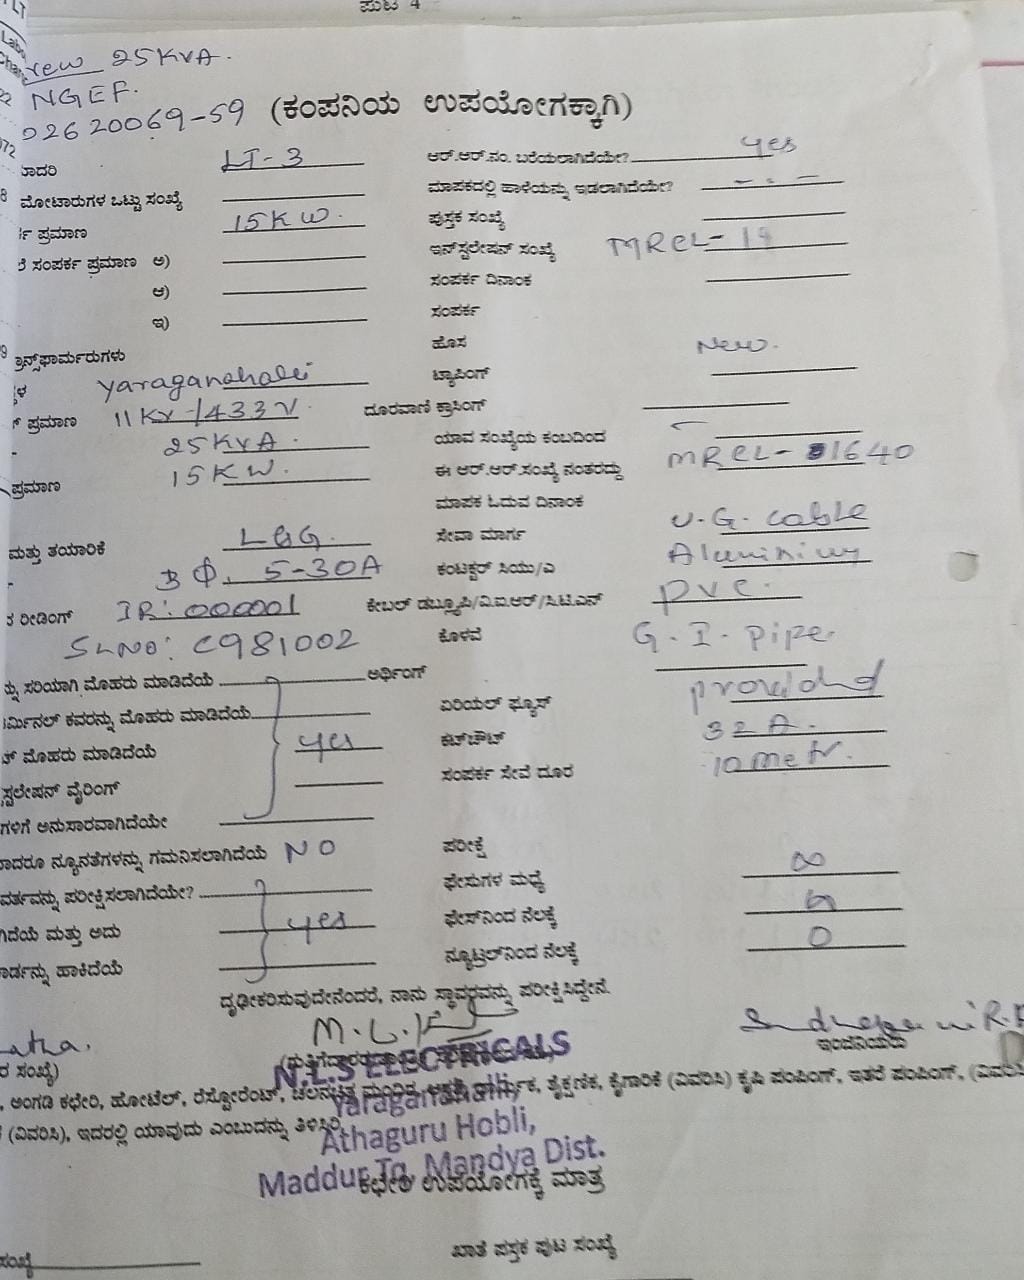 ಪುಟ 4
25 KVA.
NGEF.
02620069-59 (ಕಂಪನಿಯ ಉಪಯೋಗಕ್ಕಾಗಿ)
LT-3 ಆರ್.ಆರ್.ನಂ. ಬರೆಯಲಾಗಿದೆಯೇ? yes
ಮೋಟಾರುಗಳ ಒಟ್ಟು ಸಂಖ್ಯೆ ಮಾಪಕದಲ್ಲಿ ಹಾಳೆಯನ್ನು ಇಡಲಾಗಿದೆಯೇ? - . -
ಪ್ರಮಾಣ 15KW. ಪುಸ್ತಕ ಸಂಖ್ಯೆ
ಸಂಪರ್ಕ ಪ್ರಮಾಣ ಅ) ಇನ್‌ಸ್ಟಲೇಷನ್ ಸಂಖ್ಯೆ MRCL-
ಆ) ಸಂಪರ್ಕ ದಿನಾಂಕ
ಇ) ಸಂಪರ್ಕ
ಹೊಸ New.
ಟ್ಯಾಪಿಂಗ್
ಪ್ರಮಾಣ 11KV/433V. ದೂರವಾಣಿ ಕ್ರಾಸಿಂಗ್
25KVA. ಯಾವ ಸಂಖ್ಯೆಯ ಕಂಬದಿಂದ
ಪ್ರಮಾಣ 15KW. ಈ ಆರ್.ಆರ್.ಸಂಖ್ಯೆ ನಂತರದ್ದು MRCL-1640
ಮಾಪಕ ಓದುವ ದಿನಾಂಕ
ಮತ್ತು ತಯಾರಿಕೆ L&G. ಸೇವಾ ಮಾರ್ಗ U.G. cable
3Φ, 5-30A ಕಂಟಕ್ಟರ್ ಸಿಯು/ಎ Aluminium
ರೀಡಿಂಗ್ IR: 000001 ಕೇಬಲ್ ಡಬ್ಲ್ಯೂಪಿ/ವಿ.ಐ.ಆರ್/ಸಿ.ಟಿ.ಎಸ್ PVC.
SLNO: C981002 ಕೊಳವೆ G.I.pipe.
ಸರಿಯಾಗಿ ಮೊಹರು ಮಾಡಿದೆಯೆ ಅರ್ಥಿಂಗ್
ಕವರನ್ನು ಮೊಹರು ಮಾಡಿದೆಯೆ ಏರಿಯಲ್ ಫ್ಯೂಸ್ provided
ಮೊಹರು ಮಾಡಿದೆಯೆ yes ಕಟ್‌ಔಟ್ 32 A.
ವೈರಿಂಗ್ ಸಂಪರ್ಕ ಸೇವೆ ದೂರ 10 metr.
ಅನುಸಾರವಾಗಿದೆಯೇ
ನ್ಯೂನತೆಗಳನ್ನು ಗಮನಿಸಲಾಗಿದೆಯೆ NO ಪರೀಕ್ಷೆ
ಪರೀಕ್ಷಿಸಲಾಗಿದೆಯೇ? ಫೇಸುಗಳ ಮಧ್ಯೆ ∞
ಮತ್ತು ಅದು yes ಫೇಸ್‌ನಿಂದ ನೆಲಕ್ಕೆ
ಹಾಕಿದೆಯೆ ನ್ಯೂಟ್ರಲ್‌ನಿಂದ ನೆಲಕ್ಕೆ 0
ದೃಢೀಕರಿಸುವುದೇನೆಂದರೆ, ನಾನು ಸ್ಥಾವರವನ್ನು ಪರೀಕ್ಷಿಸಿದ್ದೇನೆ.
ಇಂಜಿನಿಯರು
ಸಂಖ್ಯೆ)
N.L.S ELECTRICALS
ಅಂಗಡಿ ಕಛೇರಿ, ಹೋಟೆಲ್, ರೆಸ್ಟೋರೆಂಟ್, ಶೈಕ್ಷಣಿಕ, ಕೈಗಾರಿಕೆ (ವಿವರಿಸಿ) ಕೃಷಿ ಪಂಪಿಂಗ್, ಇತರೆ ಪಂಪಿಂಗ್,
Yaraganahalli,
(ವಿವರಿಸಿ), ಇದರಲ್ಲಿ ಯಾವುದು ಎಂಬುದನ್ನು ತಿಳಿಸಿರಿ
Athaguru Hobli,
Maddur Tq, Mandya Dist.
ಕಛೇರಿ ಉಪಯೋಗಕ್ಕೆ ಮಾತ್ರ
ಸಂಖ್ಯೆ ಖಾತೆ ಪುಸ್ತಕ ಪುಟ ಸಂಖ್ಯೆ